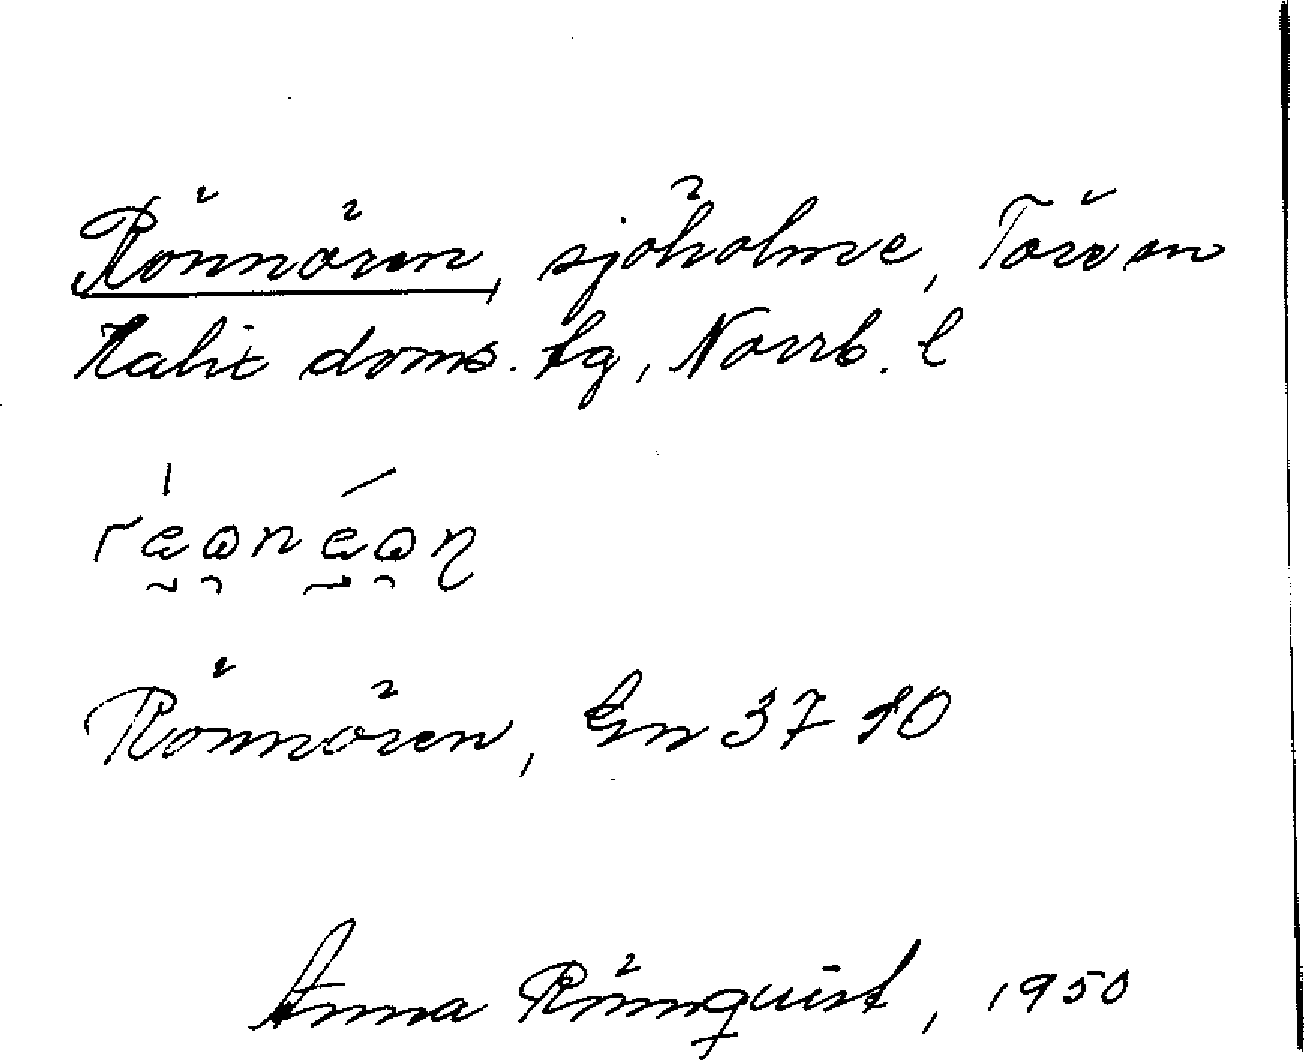 Rönnören, sjöholme, Töre sn
Kalix doms. tg, Norrb. l
Rönnören, Gn 37 80
Anna Rönnquist, 1950